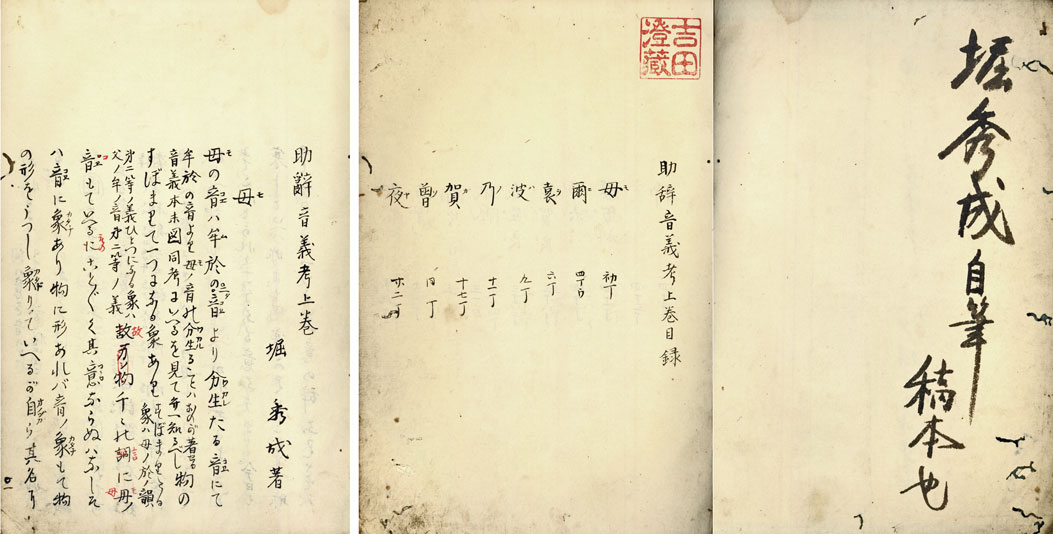 堀秀成自筆
稿本也
吉田
澄藏
助辞音義考上巻目録
母 初丁
爾 四丁ウ
袁 六丁
波 九丁
乃 十一丁
賀 十七丁
曽 同丁
夜 廿二丁
助辭音義考上巻
堀秀成著
母
母の音ハ牟於の音より分生たる音にて
牟於の音より母ノ音の分生ることハおのが著る
音義本末図同考にいへるを見て弁へ知るべし物の
すぼまりて一つになる象あり
故万ノ物千々の詞に母ノ
音もて ことごとく其意ならぬハなしそ
ハ音に象あり物に形あれバ音ノ象もて物
の形をうつし象りていへるが自ら其名